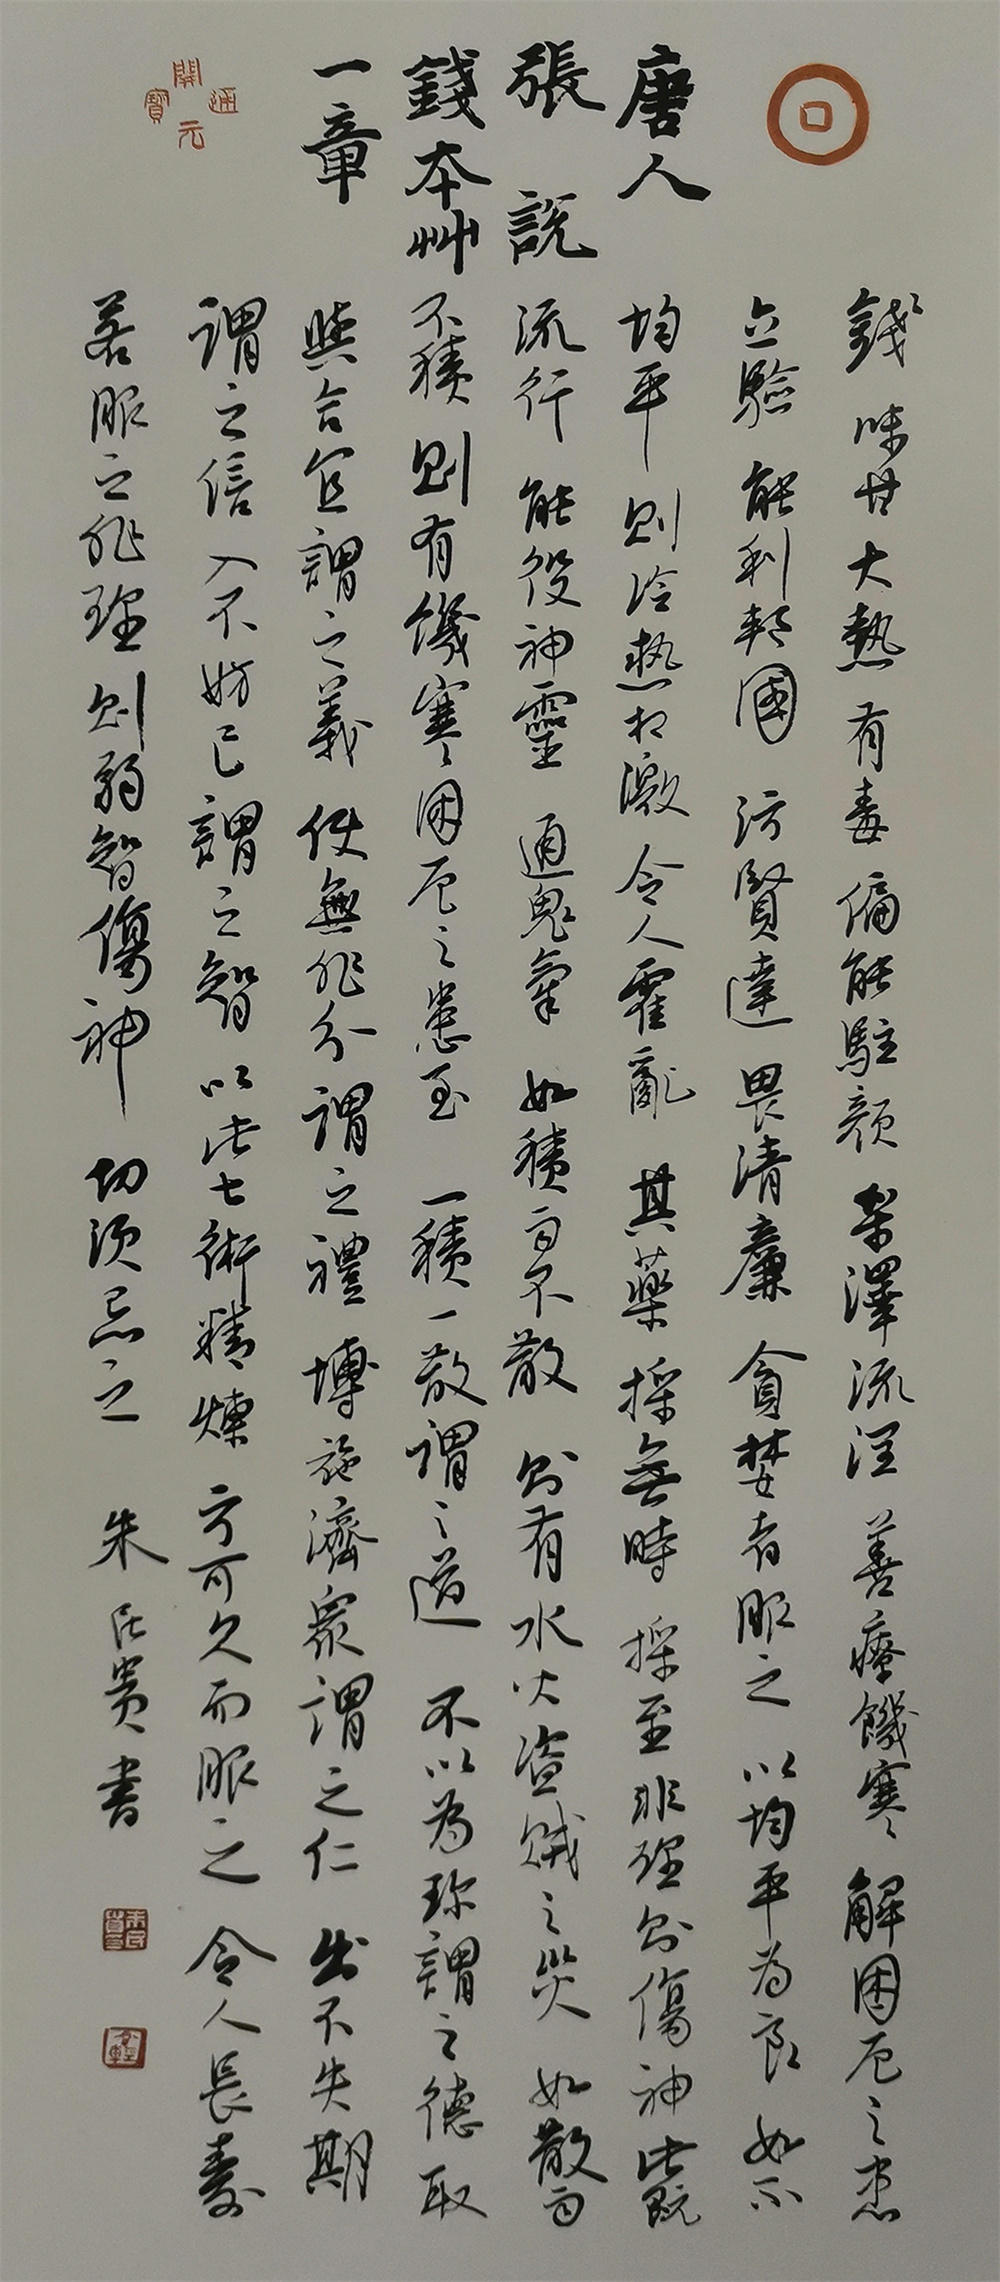 唐人
張說
錢本艸
一章
錢 味甘 大熱 有毒 偏能駐顏 采澤流潤 善療饑寒 解困厄之患
立驗 能利邦國 污賢達 畏清廉 貪婪者服之 以均平為良 如不
均平 則冷熱相激 令人霍亂 其藥 採無時 採至非理則傷神 此既
流行 能役神靈 通鬼氣 如積而不散 則有水火盜賊之災 如散而
不積 則有饑寒困厄之患至 一積一散謂之道 不以為珍謂之德 取
與合宜謂之義 使無非分謂之禮 博施濟衆謂之仁 出不失期
謂之信 入不妨己謂之智 以此七術精煉 方可久而服之 令人長壽
若服之非理 則弱智傷神 切須忌之 朱民貴書
開元通寶